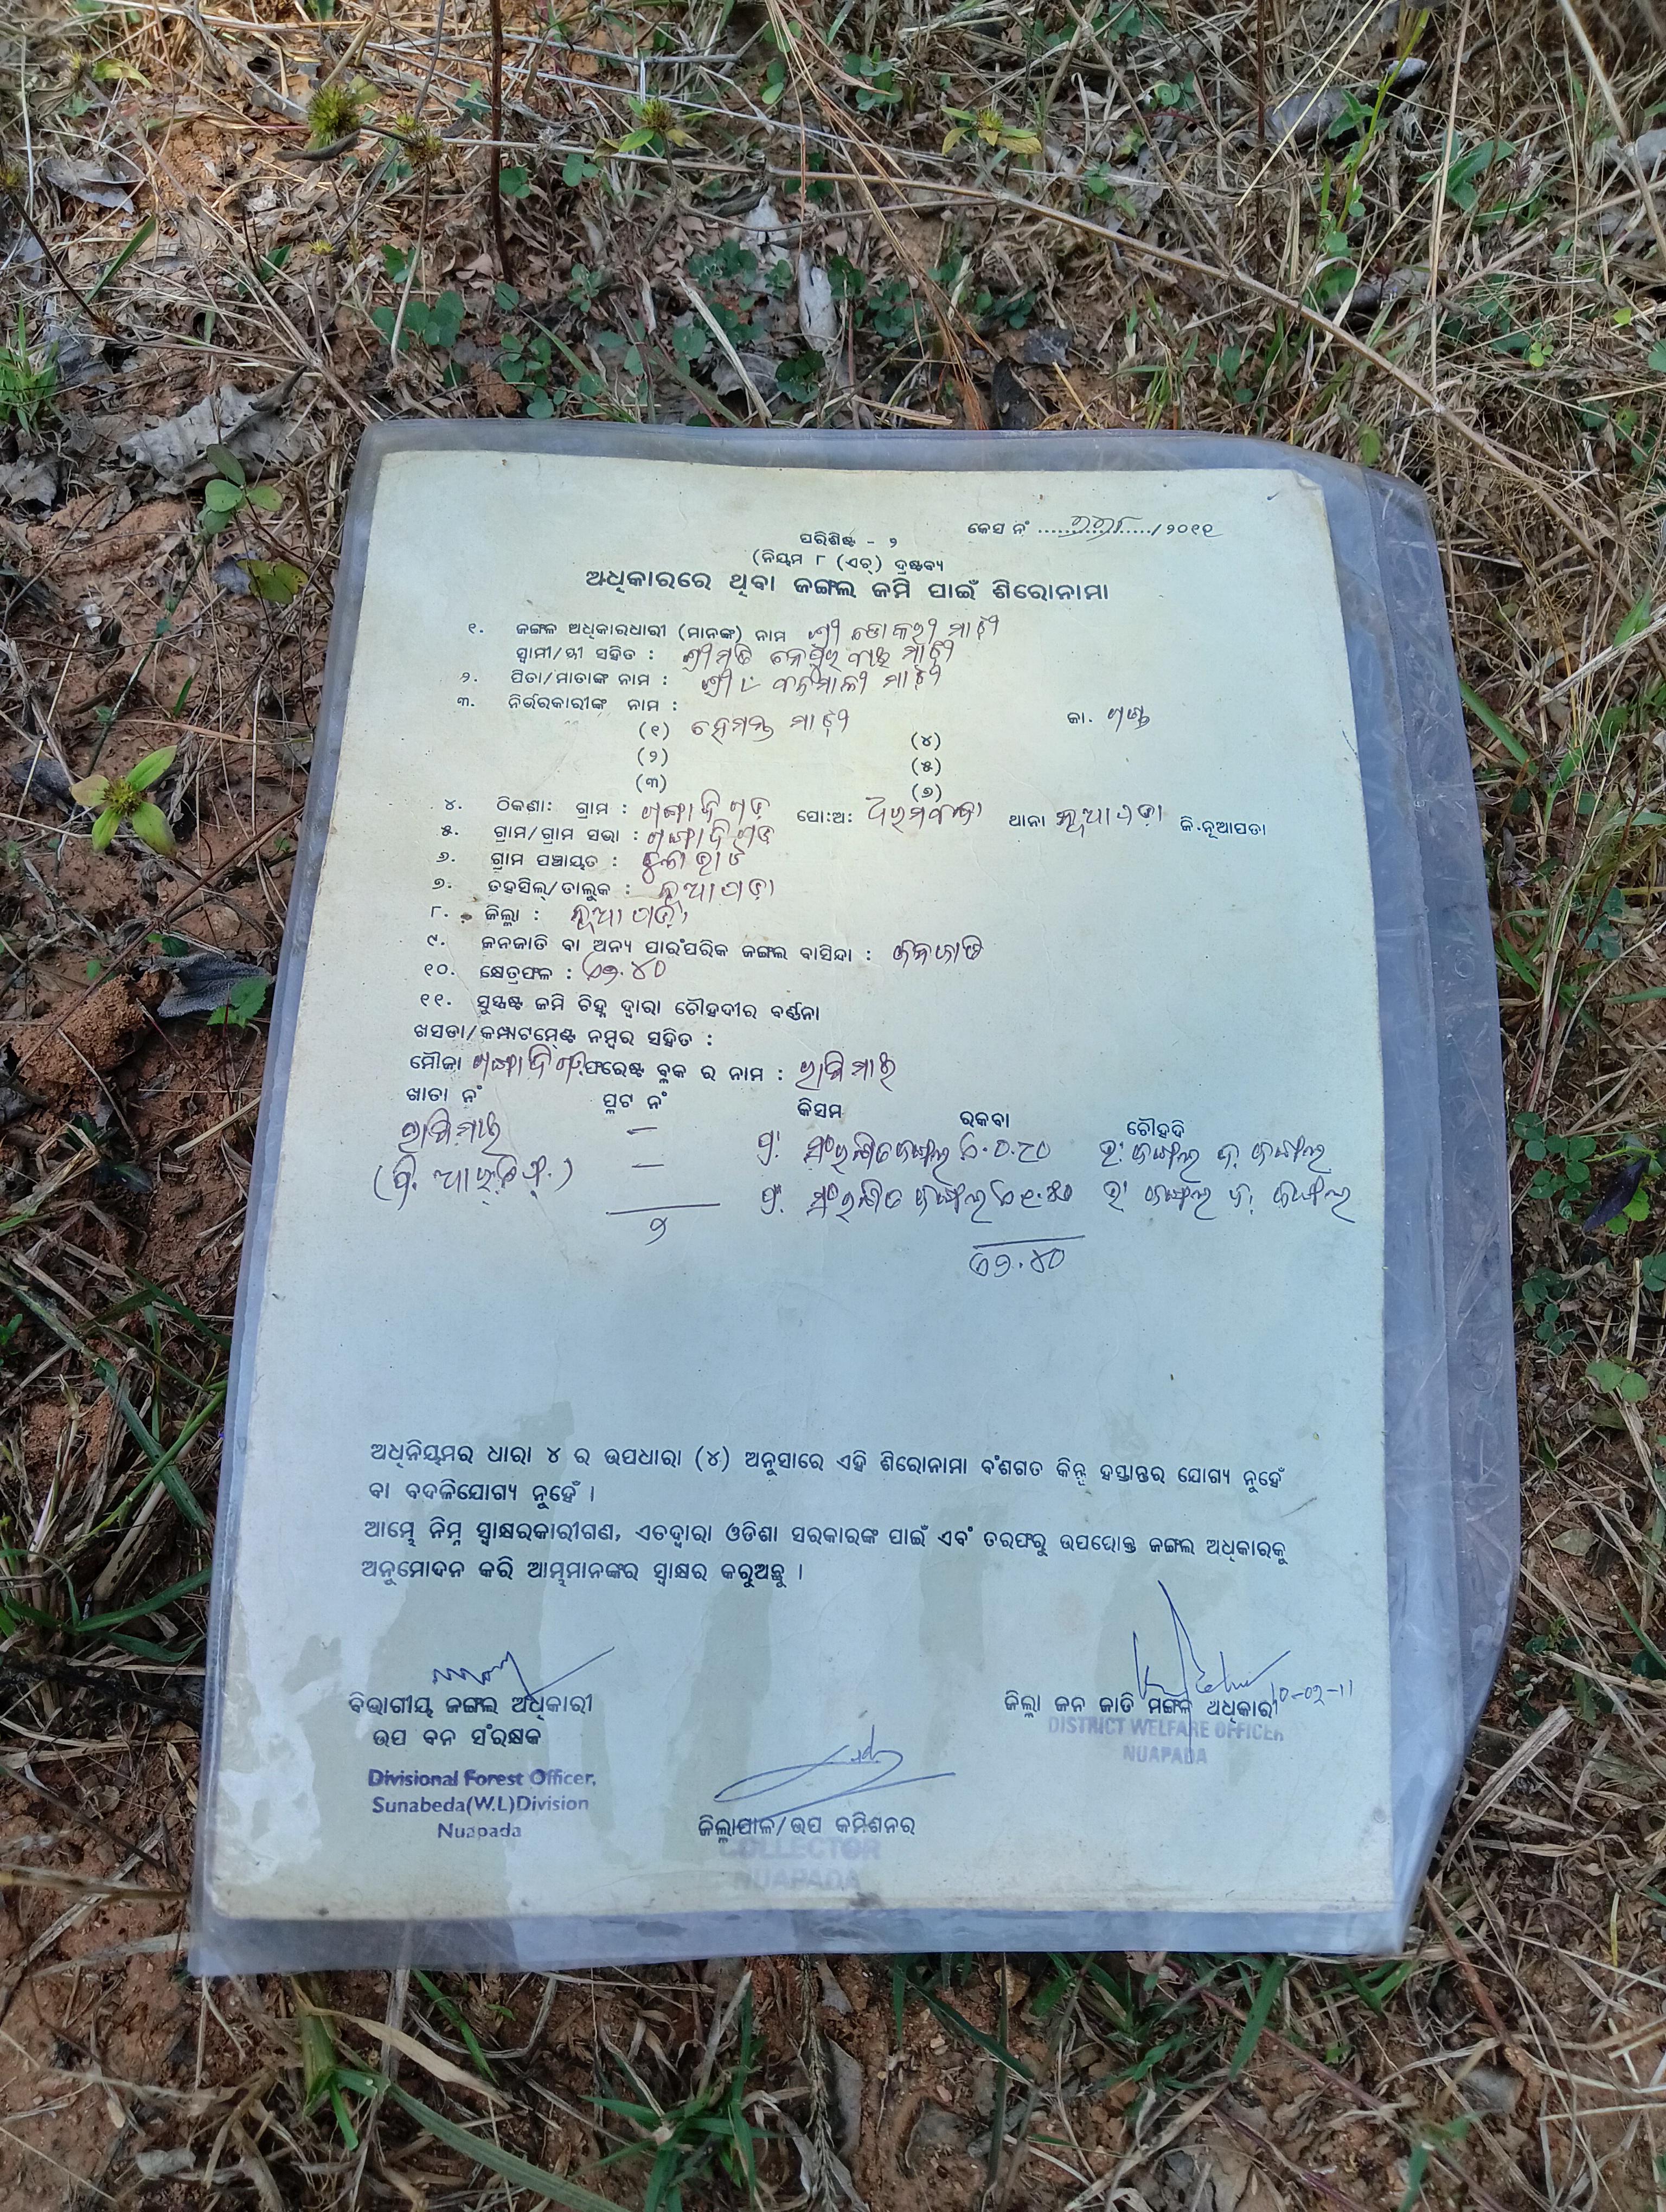 କେସ ନଂ ................/୨୦୧୧
ପରିଶିଷ୍ଟ - ୨
(ନିୟମ ୮ (ଏଚ୍) ଦ୍ରଷ୍ଟବ୍ୟ
ଅଧିକାରରେ ଥିବା ଜଙ୍ଗଲ ଜମି ପାଇଁ ଶିରୋନାମା
୧. ଜଙ୍ଗଳ ଅଧିକାରଧାରୀ (ମାନଙ୍କ) ନାମ ଶ୍ରୀ ମାଝୀ
ସ୍ୱାମୀ/ସ୍ତ୍ରୀ ସହିତ : ଶ୍ରୀମତି ମାଝୀ
୨. ପିତା/ମାତାଙ୍କ ନାମ : ଶ୍ରୀ ବନମାଳୀ ମାଝୀ
୩. ନିର୍ଭରକାରୀଙ୍କ ନାମ :
(୧) ହେମନ୍ତ ମାଝୀ ଜା. ଗଣ୍ଡ
(୨) (୪)
(୩) (୫)
(୬)
୪. ଠିକଣା: ଗ୍ରାମ : ପୋ:ଅ: ଥାନା ନୂଆପଡ଼ା ଜି.ନୂଆପଡା
୫. ଗ୍ରାମ/ଗ୍ରାମ ସଭା :
୬. ଗ୍ରାମ ପଞ୍ଚାୟତ :
୭. ତହସିଲ୍/ତାଲୁକ : ନୂଆପଡ଼ା
୮. ଜିଲ୍ଲା : ନୂଆପଡ଼ା
୯. ଜନଜାତି ବା ଅନ୍ୟ ପାରଂପରିକ ଜଙ୍ଗଲ ବାସିନ୍ଦା : ଜନଜାତି
୧୦. କ୍ଷେତ୍ରଫଳ : ଏ୨.୪୦
୧୧. ସୁସ୍ପଷ୍ଟ ଜମି ଚିହ୍ନ ଦ୍ୱାରା ଚୌହଦୀର ବର୍ଣ୍ଣନା
ଖସଡା/କମ୍ପାଟମେଣ୍ଟ ନମ୍ବର ସହିତ :
ମୌଜା ଫରେଷ୍ଟ ବ୍ଲକ ର ନାମ :
ଖାତା ନଂ ପ୍ଲଟ ନଂ କିସମ ରକବା ଚୌହଦି
— ସଂରକ୍ଷିତ ଜଙ୍ଗଲ ଏ.୦.୮୦ ଉ. ଜଙ୍ଗଲ ଦ. ଜଙ୍ଗଲ
— ସଂରକ୍ଷିତ ଜଙ୍ଗଲ ଉ. ଜଙ୍ଗଲ ଦ. ଜଙ୍ଗଲ
୨ ଏ୨.୪୦
ଅଧିନିୟମର ଧାରା ୪ ର ଉପଧାରା (୪) ଅନୁସାରେ ଏହି ଶିରୋନାମା ବଂଶଗତ କିନ୍ତୁ ହସ୍ତାନ୍ତର ଯୋଗ୍ୟ ନୁହେଁ
ବା ବଦଳିଯୋଗ୍ୟ ନୁହେଁ ।
ଆମ୍ଭେ ନିମ୍ନ ସ୍ୱାକ୍ଷରକାରୀଗଣ, ଏତଦ୍ୱାରା ଓଡିଶା ସରକାରଙ୍କ ପାଇଁ ଏବଂ ତରଫରୁ ଉପରୋକ୍ତ ଜଙ୍ଗଲ ଅଧିକାରକୁ
ଅନୁମୋଦନ କରି ଆମ୍ଭମାନଙ୍କର ସ୍ୱାକ୍ଷର କରୁଅଛୁ ।
ବିଭାଗୀୟ ଜଙ୍ଗଲ ଅଧିକାରୀ
ଉପ ବନ ସଂରକ୍ଷକ
Divisional Forest Officer,
Sunabeda(W.L)Division
Nuapada
ଜିଲ୍ଲାପାଳ/ଉପ କମିଶନର
COLLECTOR
NUAPADA
ଜିଲ୍ଲା ଜନ ଜାତି ମଙ୍ଗଳ ଅଧିକାରୀ
DISTRICT WELFARE OFFICER
NUAPADA